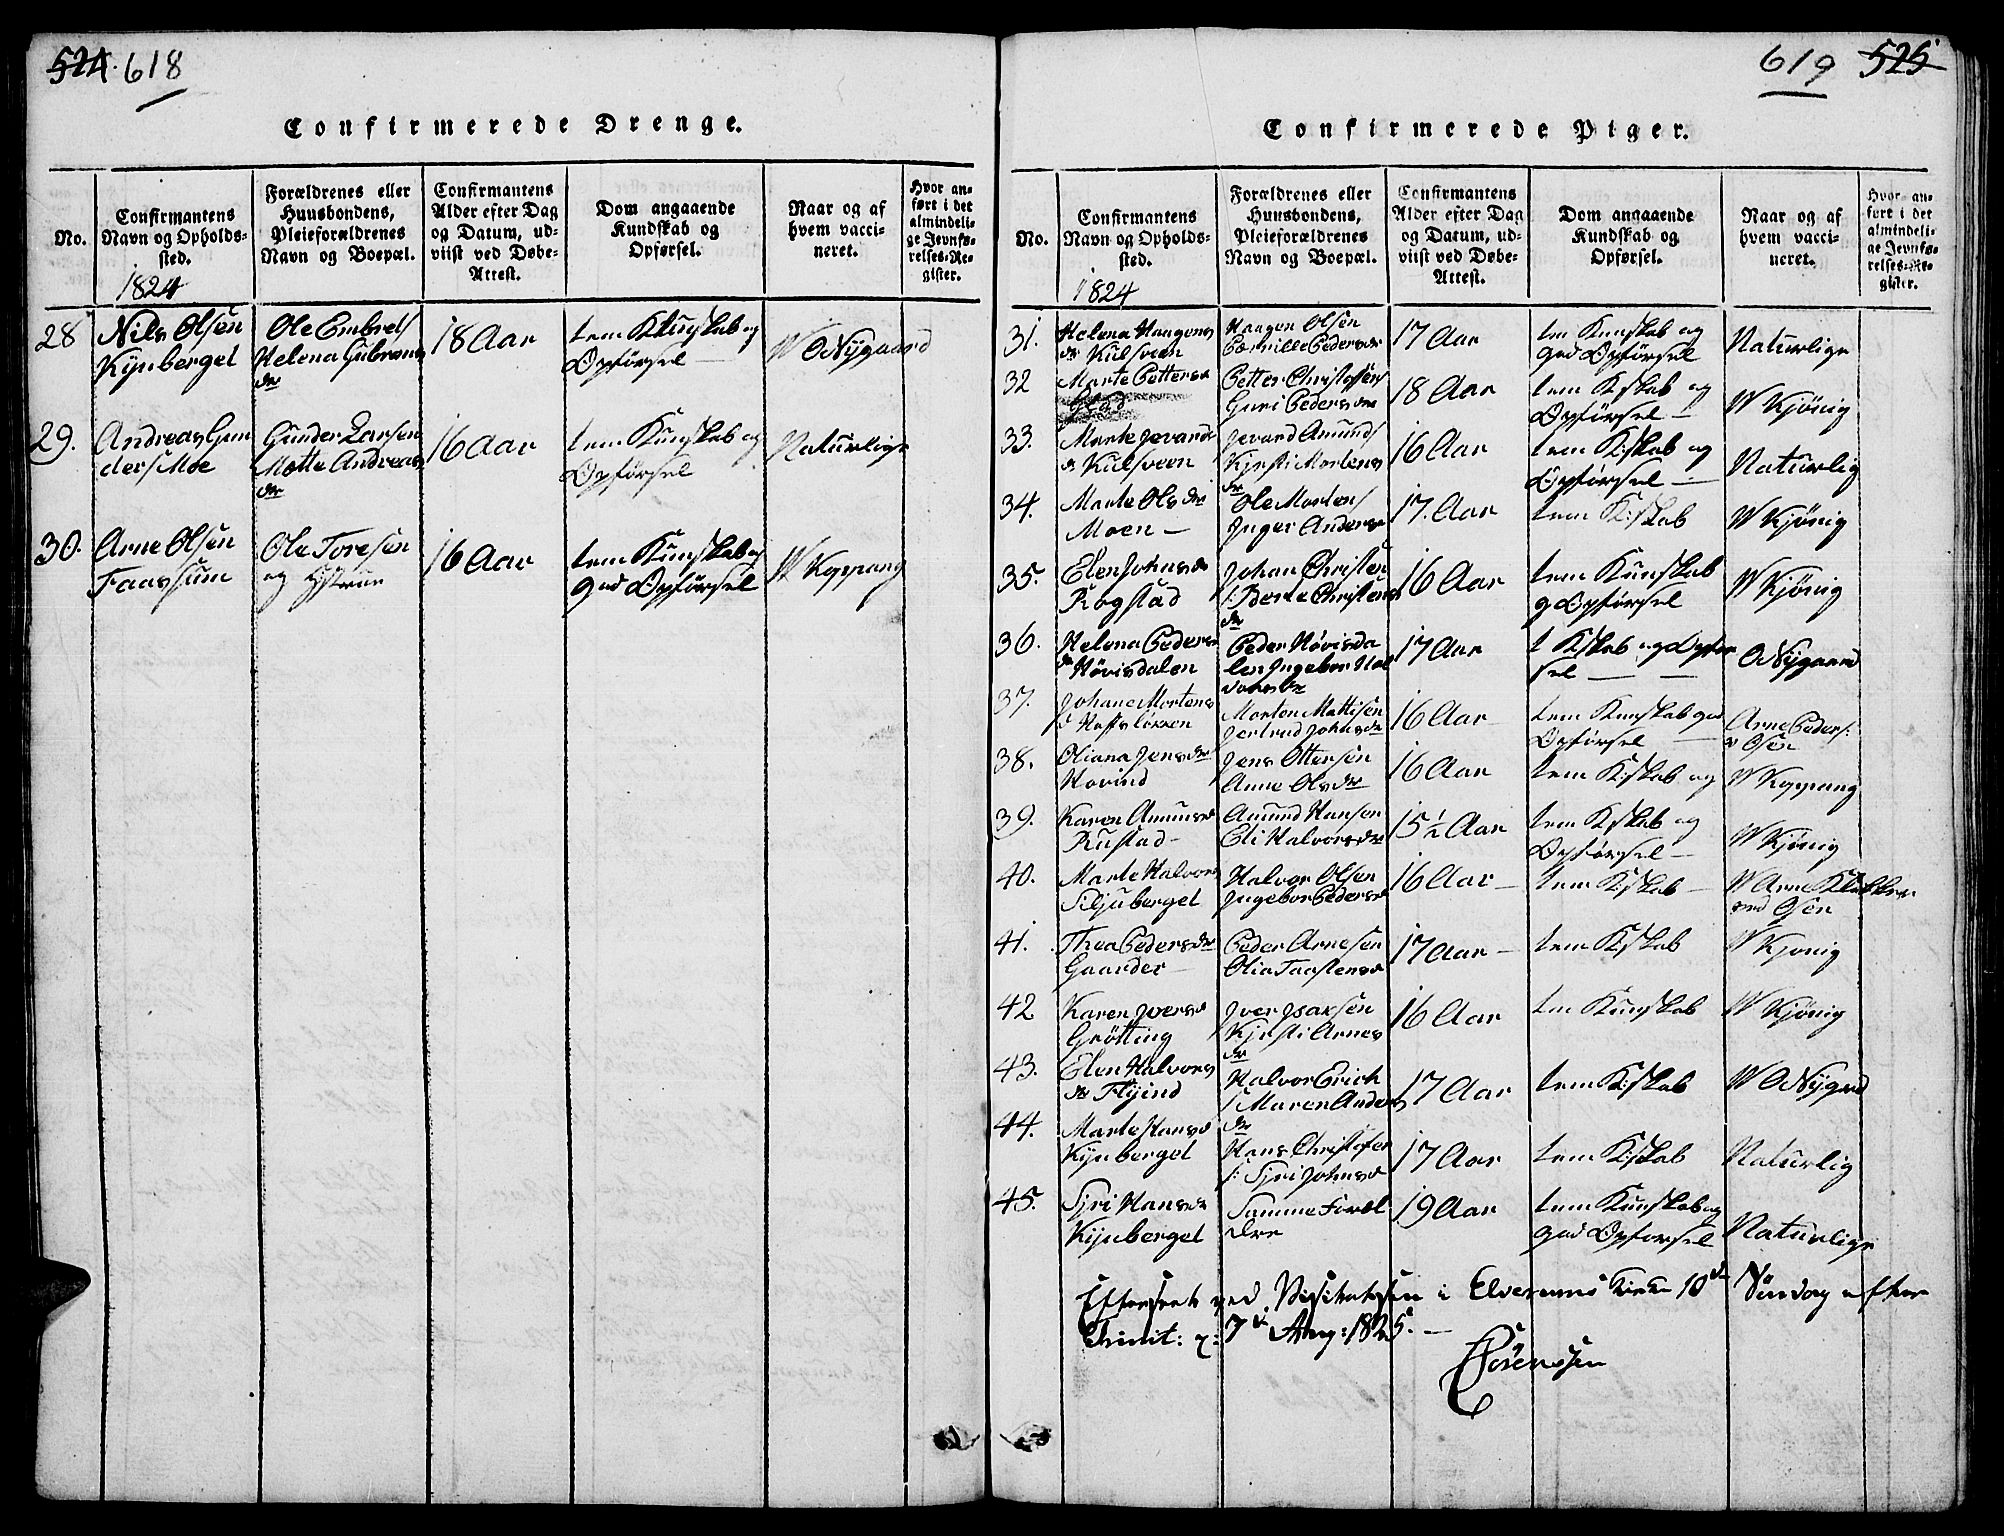 524. 618
Confirmerede Drenge.
No.
Confirmantens
Navn og Opholds-
sted.
Forældrenes eller
Huusbondens,
Pleieforældrenes
Navn og Boepæl.
Confirmantens
Alder efter Dag
og Datum, ud-
viist ved Døbe-
Attest.
Dom angaaende
Kundskab og
Opførsel.
Naar og af
hvem vacci-
neret.
Hvor an-
ført i det
almindeli-
ge Jevnfø-
relses-Re-
gister.
1824
28 Nils Olsen
Kynberget
Ole Embrets
Helena Gubrans
dr
18 Aar
tem Kunskab og
Opførsel
W ONygaard
29. Andreas Gun
ders Moe
Gunder Larsen
Mette Andreas
dr
16 Aar
tem Kunskab og
Opførsel
Naturlige
30. Arne Olsen
Faassum
Ole Toresen
og
16 Aar
tem Kunskab og
god Opførsel
W Koppang
619 525
Confirmerede Piger.
No.
Confirmantens
Navn og Opholds-
sted.
Forældrenes eller
Huusbondens,
Pleieforældrenes
Navn og Boepæl.
Confirmantens
Alder efter Dag
og Datum, ud-
viist ved Døbe-
Attest.
Dom angaaende
Kundskab og
Opførsel.
Naar og af
hvem vacci-
neret.
Hvor an-
ført i det
almindeli-
ge Jevnfø-
relses-Re-
gister.
1824
31. Helena Haagens
dr Kulsveen
Haagen Olsen
Pernille Pedersdr
17 Aar
tem Kunskab og
god Opførsel
Naturlige
32 Marte Petters
Petter Christoffers
Guri Pedersdr
18 Aar
tem Kskab og
Opførsel
W Kjönig
33. Marte Jevards
dr Kulsveen
Jevard Amunds
Kjersti Mortens
dr
16 Aar
tem K:skab og
Opførsel
Naturlig
34. Marte Olsdr
Moen
Ole Mortens
Inger Anders
17. Aar
tem K:skab
W Kjönig
35. Elen Johnsdr
Rogstad
Johan Christen
s: Berte Christens
dr
16 Aar
tem Kunskab
g Opførsel
W Kjönig
36. Helena Peders
dr Hövisdalen
Peder Hövisda
len Ingebor Hal
vorsdr
17 Aar
t Kskab og Opfør
sel
ONygaard
37. Johane Mortens
d
Morten Mattisen
Jertrud Johnsdr
16 Aar
tem Kunskab god
Opførsel
Arne Peders:
Osen
38. Oliana Jensdr
Hovind
Jens Ottersen
Anne Olsdr
16 Aar
tem K:skab og
W Koppang
39. Karen Amunsd
Rustad
Amund Hansen
Eli Halvorsdr
15 1/2 Aar
tem Kskab og
Opførsel
W Kjönig
40. Marte Halvors
Siljuberget
Halvor Olsen
Ingebor Pedersd
16 Aar
tem Kskab
W Arne
ved Osen
41. Thea Pedersdr
Gaarder
Peder Arnesen
Olia Taastensd
17 Aar
tem Kskab
W Kjonig
42 Karen Iversd
Grötting
Iver Isaksen
Kjersti Arnes
dr
16 Aar
tem Kunskab
W Kjönig
43. Elen Halvors
dr Flyind
Halvor Erich
s Maren Anders
dr
17 Aar
tem K:skab
W ONygard
44. Marte Hansd
Kynberget
Hans Christofer
s: Sjri Johnsd
17 Aar
tem K:skab
Naturlig
45. Sjri Hansdr
Kynberget
Samme Foræl
dre
19 Aar
tem Kunskab og
god Opførsel
Naturlige
Efterseet ved Visitatsen i Elverums Kirke 10de Søndag efter
Trinit: 7de Aug: 1825.
Sörenssen